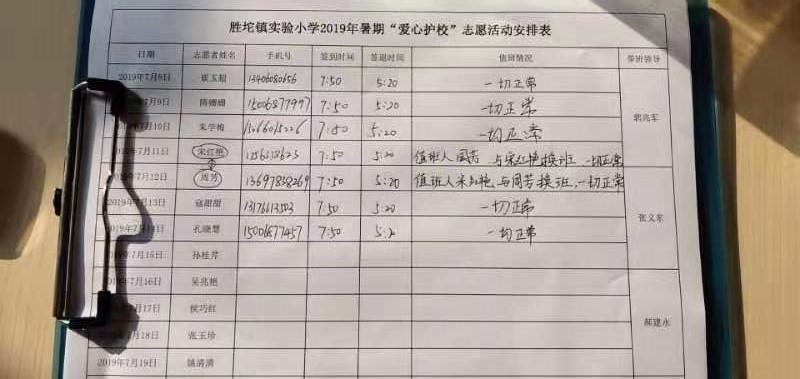 胜坨镇实验小学2019年暑期“爱心护校”志愿活动安排表
日期 志愿者姓名 手机号 签到时间 签退时间 值班情况 带班领导
2019年7月8日 崔玉超 13406080656 7:50 5:20 一切正常
7月9日 隋姗姗 15006877997 7:50 5:20 一切正常 郭兆军
7月10日 朱学梅 7:50 5:20 一切正常
7月11日 宋红艳 7:50 5:20 值班人周芳 与宋红艳换班 一切正常
7月12日 周芳 13697838269 7:50 5:20 值班人宋红艳,与周芳换班,一切正常
2019年7月13日 寇甜甜 13176613503 7:50 5:20 一切正常 张文东
孔晓慧 15006877457 7:50 5:20 一切正常
2019年7月15日 孙桂芹
2019年7月16日 吴兆艳
7月17日 侯巧红 郝建永
7月18日 张玉珍
2019年7月19日 镇清清